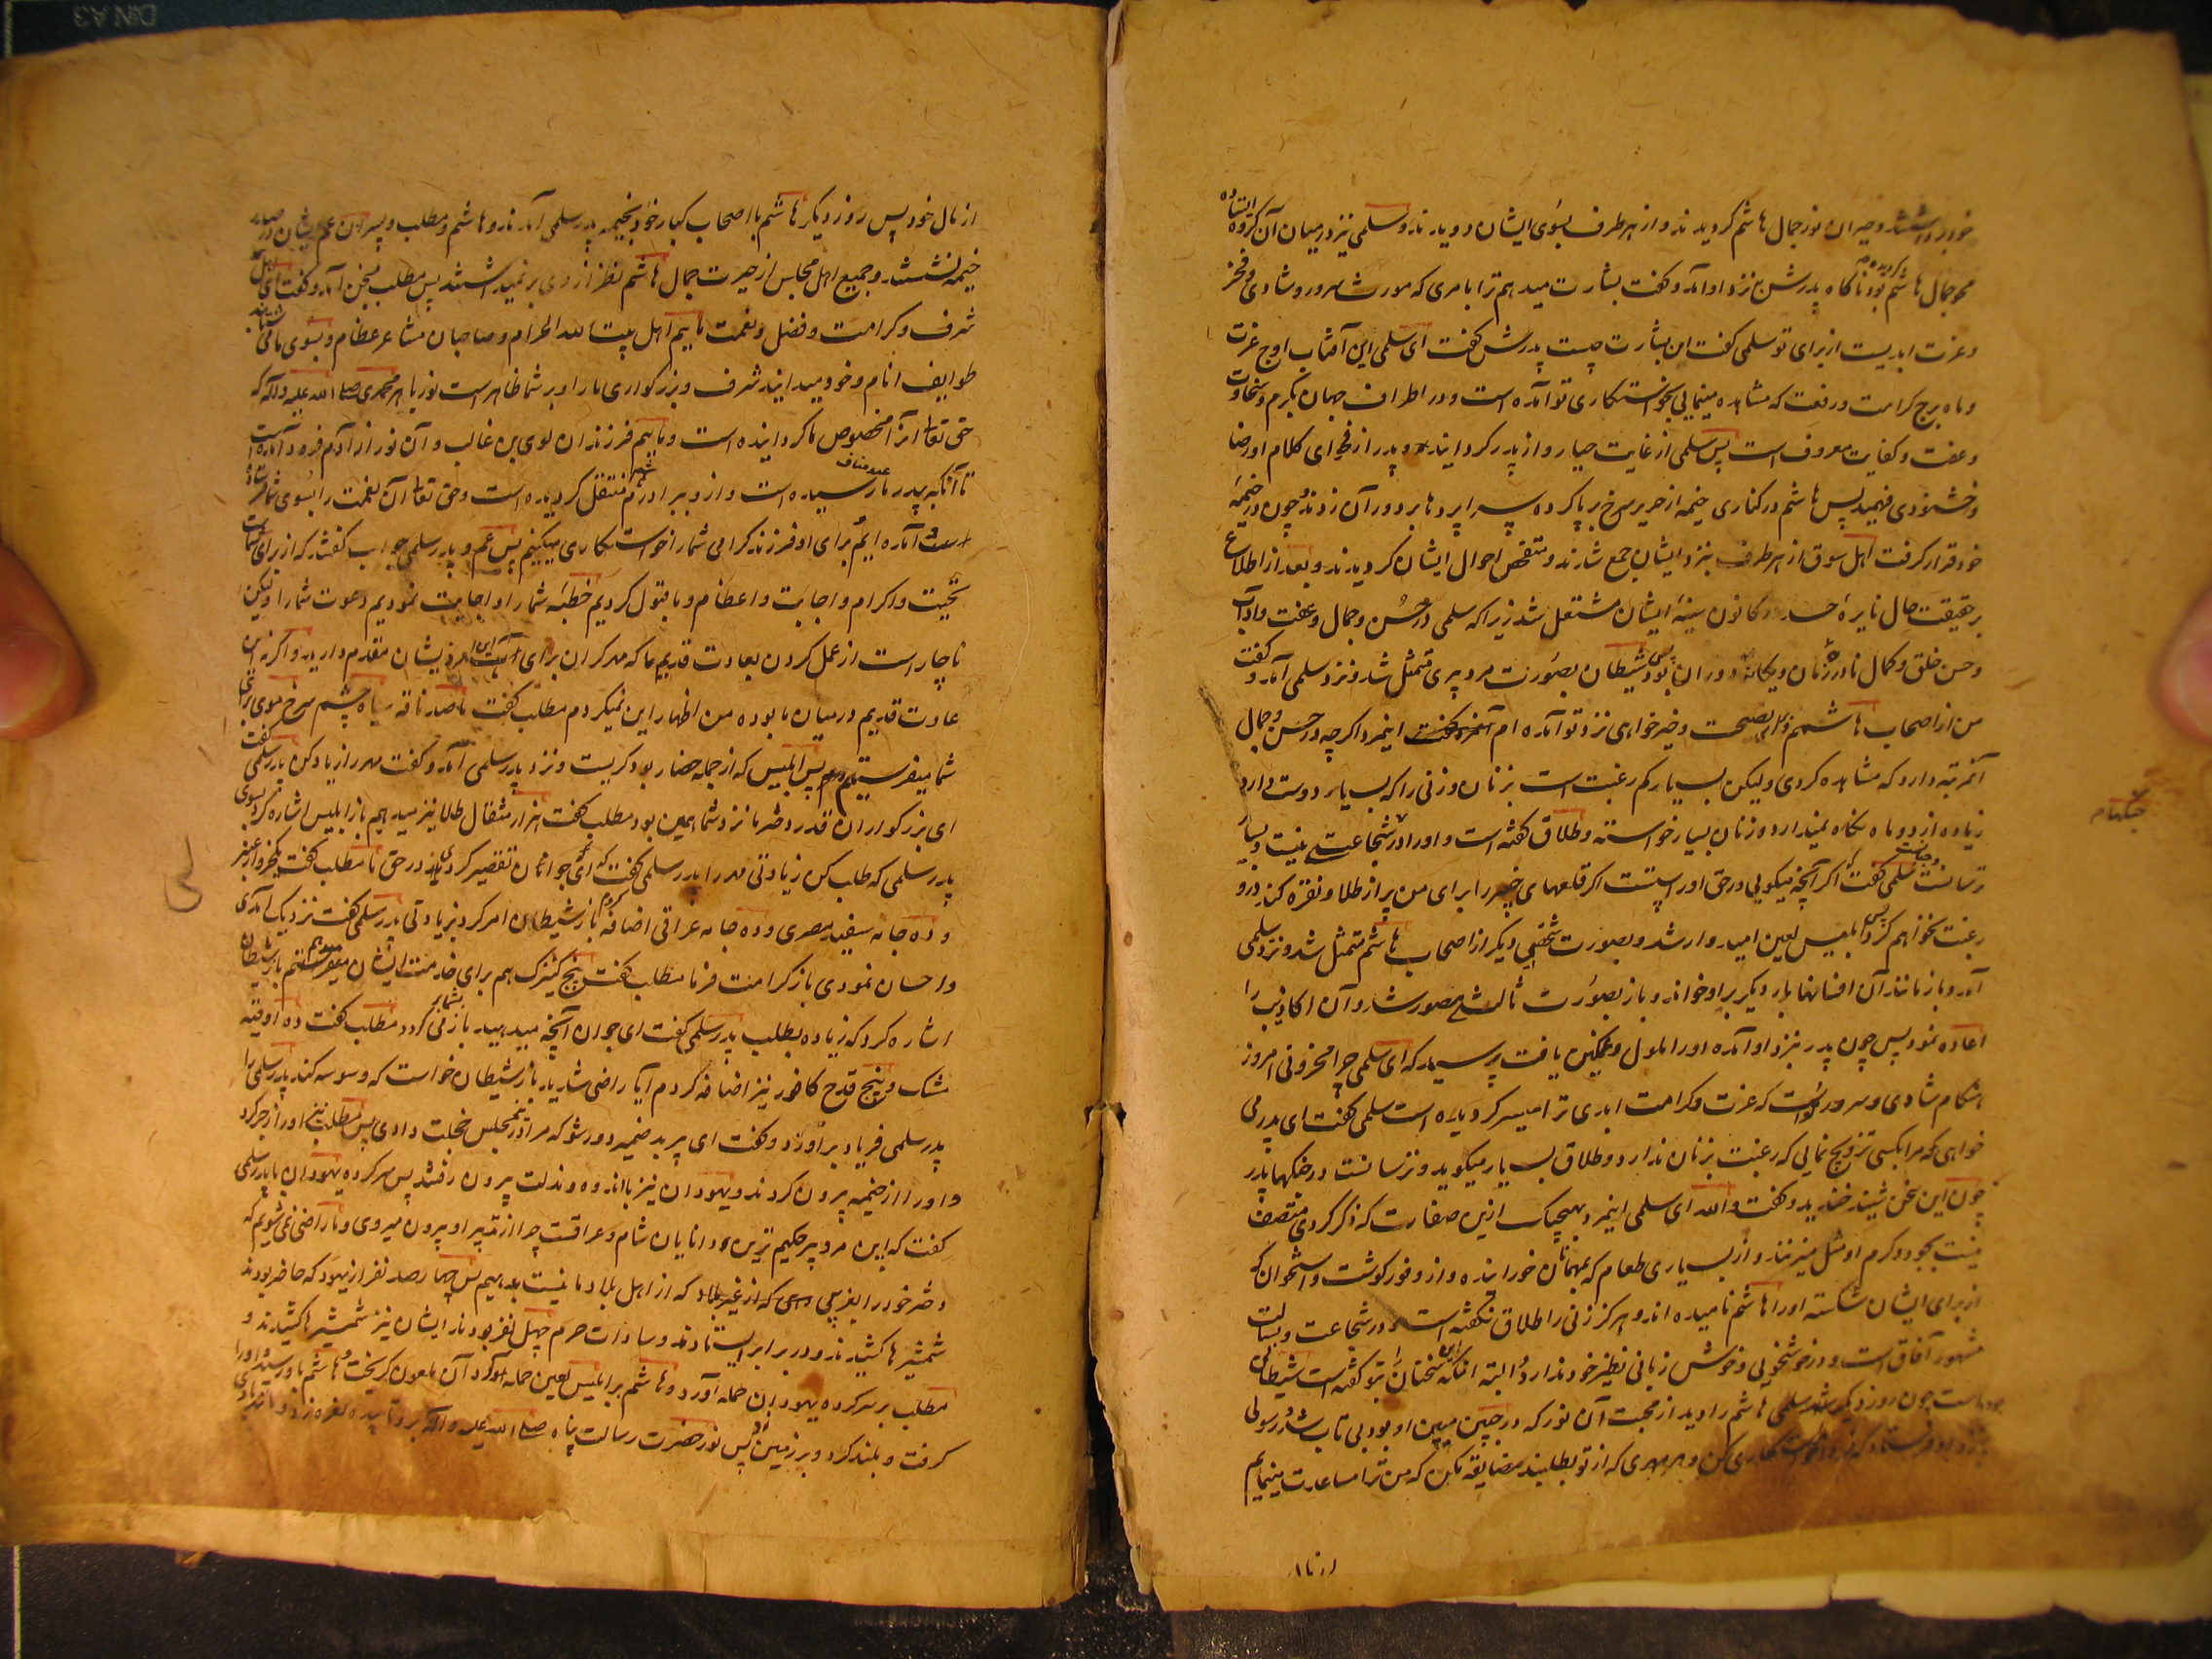 خود برداشتند و حیران نور جمال هاشم کردیدند و از هر طرف بسوی ایشان دویدند و سلمی نیز در میان آن کروه ایستاده
محو جمال هاشم بود ناکاه پدرش نزد او آمد و کفت بشارت میدهم ترا بامری که مورث سرور و شادی و فخر
و عزت ابدیست از برای تو سلمی کفت این بشارت چیست پدرش کفت ای سلمی این آفتاب اوج عزت
و ماه برج کرامت و رفعت که مشاهده مینمایی بخواستکاری تو آمده است و در اطراف جهان بکرم و سخاوت
و عفت و کفایت معروف است پس سلمی از غایت حیا رو از پدر کردانید و پدر از فحوای کلام او رضا
و خشنودی فهمید پس هاشم در کناری خیمه از حریر سرخ برپا کرده سراپردها بر دور آن زدند و چون در خیمهٔ
خود قرار کرفت اهل سوق از هر طرف بنزد ایشان جمع شدند و متفحص احوال ایشان کردیدند و بعد از اطلاع
بر حقیقت حال نایرهٔ حسد در کانون سینهٔ ایشان مشتعل شد زیرا که سلمی در حسن و جمال و عفت و آداب
و حسن خلق و کمال نادرهٔ زنان و یکانهٔ دوران بود پس شیطان بصورت مرد پیری متمثل شد و نزد سلمی آمد و کفت
من از اصحاب هاشمم و برای نصیحت و خیرخواهی نزد تو آمده ام اینمرد اکرچه در حسن و جمال
آنمرتبه دارد که مشاهده کردی ولیکن بسیار کم رغبت است بزنان و زنی را که بسیار دوست دارد
زیاده از دو ماه نکاه نمیدارد و زنان بسیار خواسته و طلاق کفته است و او را در شجاعت نیست و بسیار
ترسانست سلمی کفت اکر آنچه میکویی در حق او راستست اکر قلعهای خیبر را برای من پر از طلا و نقره کند در او
رغبت نخواهم کرد پس ابلیس لعین امیدوار شد و بصورت شخصی دیکر از اصحاب هاشم متمثل شد و نزد سلمی
آمد و باز مانند آن افسانها بار دیکر بر او خواند و باز بصورت ثالث مصور شد و آن اکاذیب را
اعاده نمود پس چون پدر بنزد او آمده او را ملول و غمکین یافت پرسید که ای سلمی چرا محزونی امروز
هنکام شادی و سرور است که عزت و کرامت ابدی ترا میسر کردیده است سلمی کفت ای پدر می
خواهی که مرا بکسی تزویج نمایی که رغبت بزنان ندارد و طلاق بسیار میکوید و ترسانست در جنکها پدر
چون این سخن شنید خندید و کفت والله ای سلمی اینمرد بهیچیک ازین صفات که ذکر کردی متصف
نیست بجود و کرم او مثل میزنند و از بسیاری طعام که بمهمانان خورانیده و از وفور کوشت و استخوان که
از برای ایشان شکسته او را هاشم نامیده اند و هرکز زنی را طلاق نکفته است و در شجاعت و بسالت
مشهور آفاق است و در خوشخویی و خوش زبانی نظیر خود ندارد و البته آنکه این سخنان را بتو کفته است شیطان
بوده است چون روز دیکر شد سلمی هاشم را دید از محبت آن نور که در جبین مبین او بود بی تاب شد و رسولی
بنزد او فرستاد که فردا خواستکاری کن و هر مهری که از تو بطلبند مضایقه مکن که من ترا مساعدت مینمایم
از مال
جنکهام
از مال خود پس روز دیکر هاشم با اصحاب کبار خود بخیمهٔ پدر سلمی آمدند و هاشم و مطلب و پسران عم ایشان در صدر
خیمه نشستند و جمیع اهل مجلس از حیرت جمال هاشم نظر از روی بر نمیداشتند پس مطلب بسخن آمد و کفت ای اهل
شرف و کرامت و فضل و نعمت ماییم اهل بیت الله الحرام و صاحبان مشاعر عظام و بسوی ما می شتابند
طوایف انام و خود میدانید شرف و بزرکواری ما را و بر شما ظاهر است نور باهر محمدی صلی الله علیه و آله که
حق تعالی آنرا مخصوص ما کردانیده است و ماییم فرزندان لوی بن غالب و آن نور از آدم فرود آمده است
تا آنکه بپدر ما عبد مناف رسیده است و از و ببرادرم هاشم منتقل کردیده است و حق تعالی آن نعمت را بسوی شما فرستاده
است و آمده ایم برای او فرزند کرامی شما را خواستکاری میکنیم پس عم و پدر سلمی جواب کفتند که از برای شماست
تحیت و اکرام و اجابت و اعظام و ما قبول کردیم خطبهٔ شما را و اجابت نمودیم دعوت شما را ولیکن
ناچار است از عمل کردن بعادت قدیم ما که مهر کران برای این امر ذیشان مقدم دارید و اکر نه این
عادت قدیم در میان ما بوده من اظهار این نمیکردم مطلب کفت ما صد ناقهٔ سیاه چشم سرخ موی برای
شما میفرستیم پس ابلیس که از جمله حضار بود کریست و نزد پدر سلمی آمد و کفت مهر را زیاد کن پدر سلمی کفت
ای بزرکواران قدر دختر ما نزد شما همین بود مطلب کفت هزار مثقال طلا نیز میدهیم باز ابلیس اشاره کرد بسوی
پدر سلمی که طلب کن زیادتی مهر را پدر سلمی کفت که ای جوان تقصیر کردی در حق ما مطلب کفت یکخروار عنبر
و ده جامهٔ سفید مصری و ده جامه عراقی اضافه کردم باز شیطان امر کرد بزیادتی پدر سلمی کفت نزدیک آمدی
و احسان نمودی باز کرامت فرما مطلب کفت پنج کنیزک هم برای خدمت ایشان میدهم باز شیطان
اشاره کرد که زیاده بطلب پدر سلمی کفت ای جوان آنچه میدهید باز بشما بر می کردد مطلب کفت ده اوقیه
مشک و پنج قدح کافور نیز اضافه کردم آیا راضی شدید باز شیطان خواست که وسوسه کند پدر سلمی را
پدر سلمی فریاد برآورد و کفت ای پیر بد ضمیر دور شو که مرا در این مجلس خجلت دادی پس مطلب نیز او را زجر کرد
و او را از خیمه بیرون کردند و یهودان نیز با اندوه و مذلت بیرون رفتند پس سرکردهٔ یهودان با پدر سلمی
کفت که این مرد پیر حکیم ترین دانایان شام و عراقست چرا از تدبیر او بیرون میروی و ما راضی نمی شویم که
دختر خود را بغریبی که از اهل بلاد ما نیست بدهیم پس چهارصد نفر از یهود که حاضر بودند
شمشیرها کشیدند و در برابر ایستادند و سادات حرم چهل نفر بودند ایشان نیز شمشیرها کشیدند و
مطلب بر سرکردهٔ یهودان حمله آورد و هاشم بر ابلیس لعین حمله آورد آن ملعون کریخت و هاشم باو رسید و او را
کرفت و بلند کرد و بر زمین زد پس نور حضرت رسالت پناه صلی الله علیه و آله بر و تابید نعره زد و مانند باد